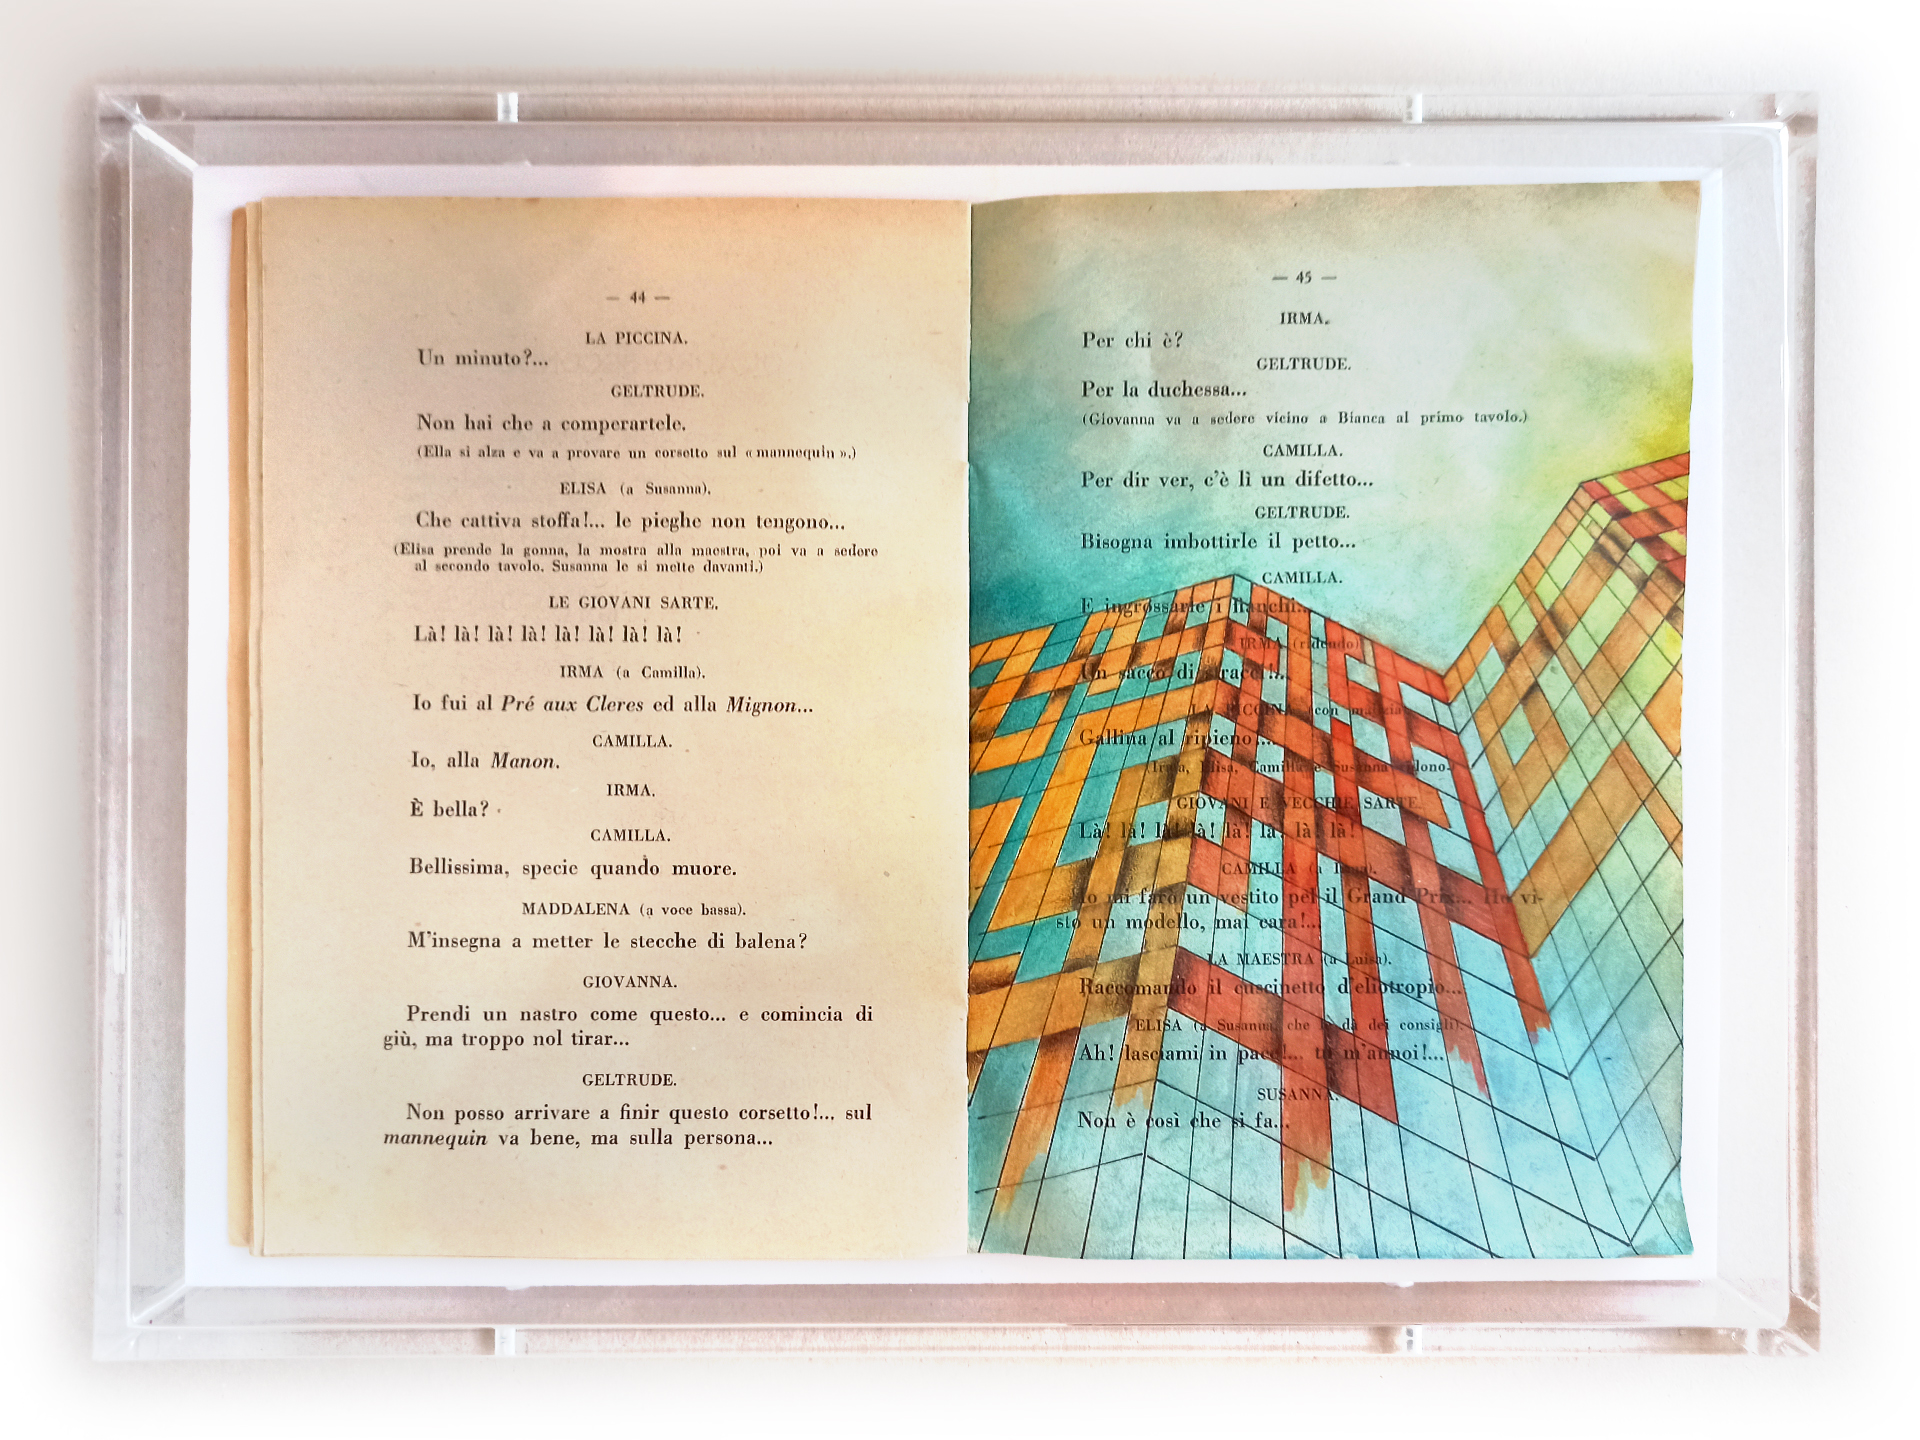 — 44 —
LA PICCINA.
Un minuto?...
GELTRUDE.
Non hai che a comperartele.
(Ella si alza e va a provare un corsetto sul « mannequin ».)
ELISA (a Susanna).
Che cattiva stoffa!... le pieghe non tengono...
(Elisa prende la gonna, la mostra alla maestra, poi va a sedere
al secondo tavolo. Susanna le si mette davanti.)
LE GIOVANI SARTE.
Là! là! là! là! là! là! là! là!
IRMA (a Camilla).
Io fui al Pré aux Cleres ed alla Mignon...
CAMILLA.
Io, alla Manon.
IRMA.
È bella?
CAMILLA.
Bellissima, specie quando muore.
MADDALENA (a voce bassa).
M'insegna a metter le stecche di balena?
GIOVANNA.
Prendi un nastro come questo... e comincia di
giù, ma troppo nol tirar...
GELTRUDE.
Non posso arrivare a finir questo corsetto!... sul
mannequin va bene, ma sulla persona...
— 45 —
IRMA.
Per chi è?
GELTRUDE.
Per la duchessa...
(Giovanna va a sedere vicino a Bianca al primo tavolo.)
CAMILLA.
Per dir ver, c'è lì un difetto...
GELTRUDE.
Bisogna imbottirle il petto...
CAMILLA.
E ingrossarle i fianchi...
IRMA (ridendo)
Un sacco di stracci!...
LA PICCINA (con malizia)
Gallina al ripieno!...
(Irma, Elisa, Camilla e Susanna ridono.)
GIOVANI E VECCHIE SARTE.
Là! là! là! là! là! là! là! là!
CAMILLA (a Irma).
Io mi farò un vestito pel il Grand Prix... Ho vi-
sto un modello, mai cara!...
LA MAESTRA (a Luisa).
Raccomando il cuscinetto d'eliotropio...
ELISA (a Susanna, che le dà dei consigli).
Ah! lasciami in pace!... tu m'annoi!...
SUSANNA.
Non è così che si fa...